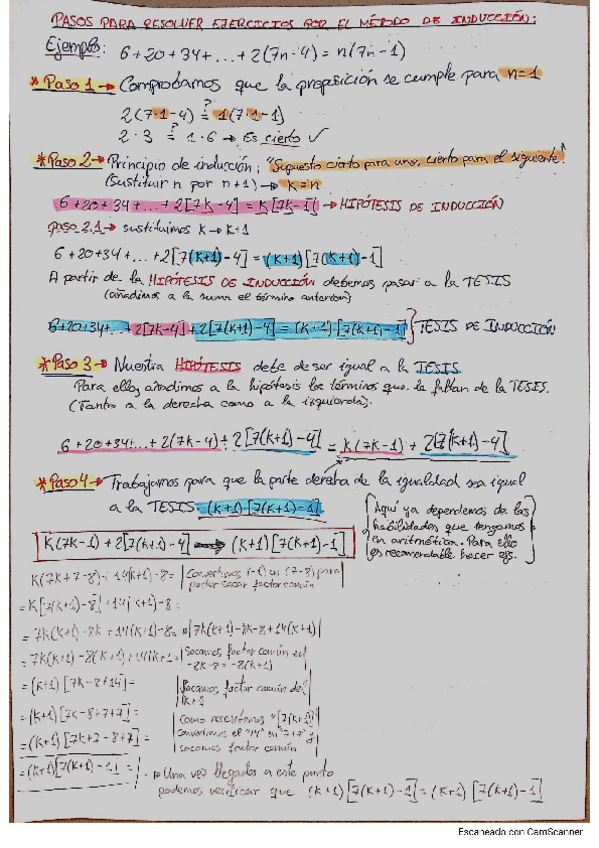 PASOS PARA RESOLVER EJERCICIOS POR EL MÉTODO DE INDUCCIÓN:
Ejemplo: 6+20+34+...+2(7n-4)=n(7n-1)
*Paso 1→ Comprobamos que la proposición se cumple para n=1
2(7·1-4) ≟ 1(7·1-1)
2·3 ≟ 1·6 → Es cierto ✓
*Paso 2→ Principio de inducción: "Supuesto cierto para uno, cierto para el siguiente."
(sustituir n por n+1) → K=n
6+20+34+...+2[7K-4]=K[7K-1] → HIPÓTESIS DE INDUCCIÓN
paso 2.1→ sustituimos K→K+1
6+20+34+...+2[7(K+1)-4]=(K+1)[7(K+1)-1]
A partir de la HIPÓTESIS DE INDUCCIÓN debemos pasar a la TESIS
(añadimos a la suma el término anterior)
6+20+34+...+2[7K-4]+2[7(K+1)-4]=(K+1)[7(K+1)-1] } TESIS DE INDUCCIÓN
*Paso 3→ Nuestra HIPÓTESIS debe de ser igual a la TESIS
Para ello, añadimos a la hipótesis los términos que la faltan de la TESIS.
(Tanto a la derecha como a la izquierda).
6+20+34+...+2(7K-4)+2[7(K+1)-4]=K(7K-1)+2[7(K+1)-4]
*Paso 4→ Trabajamos para que la parte derecha de la igualdad sea igual
a la TESIS: (K+1)[7(K+1)-1]
K(7K-1)+2[7(K+1)-4] → (K+1)[7(K+1)-1]
Aquí ya dependemos de las
habilidades que tengamos
en aritmética. Para ello
es recomendable hacer ejs.
K(7K+7-8)+14(K+1)-8= | Convertimos (-1) en (7-8) para
poder sacar factor común
=K[7(K+1)-8]+14(K+1)-8=
=7K(K+1)-8K+14(K+1)-8= |7K(K+1)-8K-8+14(K+1)|
=7K(K+1)-8(K+1)+14(K+1)= | Sacamos factor común en
-8K-8=-8(K+1)
=(K+1)[7K-8+14]= | Sacamos factor común de
K+1
=(K+1)[7K-8+7+7]= | Como necesitamos "[7(K+1)]
convertimos el "14" en "7+7" y
=(K+1)[7K+7-8+7]= sacamos factor común
=(K+1)[7(K+1)-1]=
→ Una vez llegados a este punto
podemos verificar que (K+1)[7(K+1)-1]=(K+1)[7(K+1)-1]
Escaneado con CamScanner